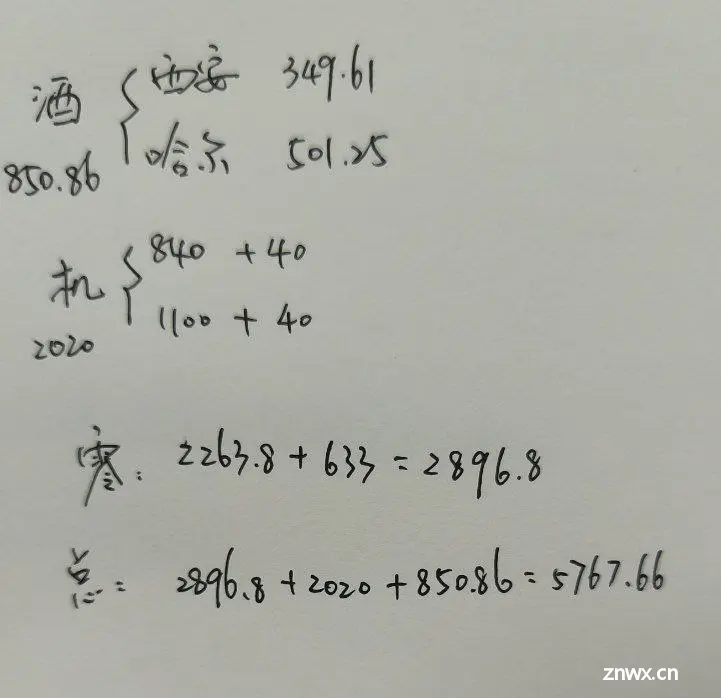 酒 西安 349.61
850.86 哈尔 501.25
机 840 + 40
2020 1100 + 40
寒: 2263.8 + 633 = 2896.8
总: 2896.8 + 2020 + 850.86 = 5767.66
znwx.cn